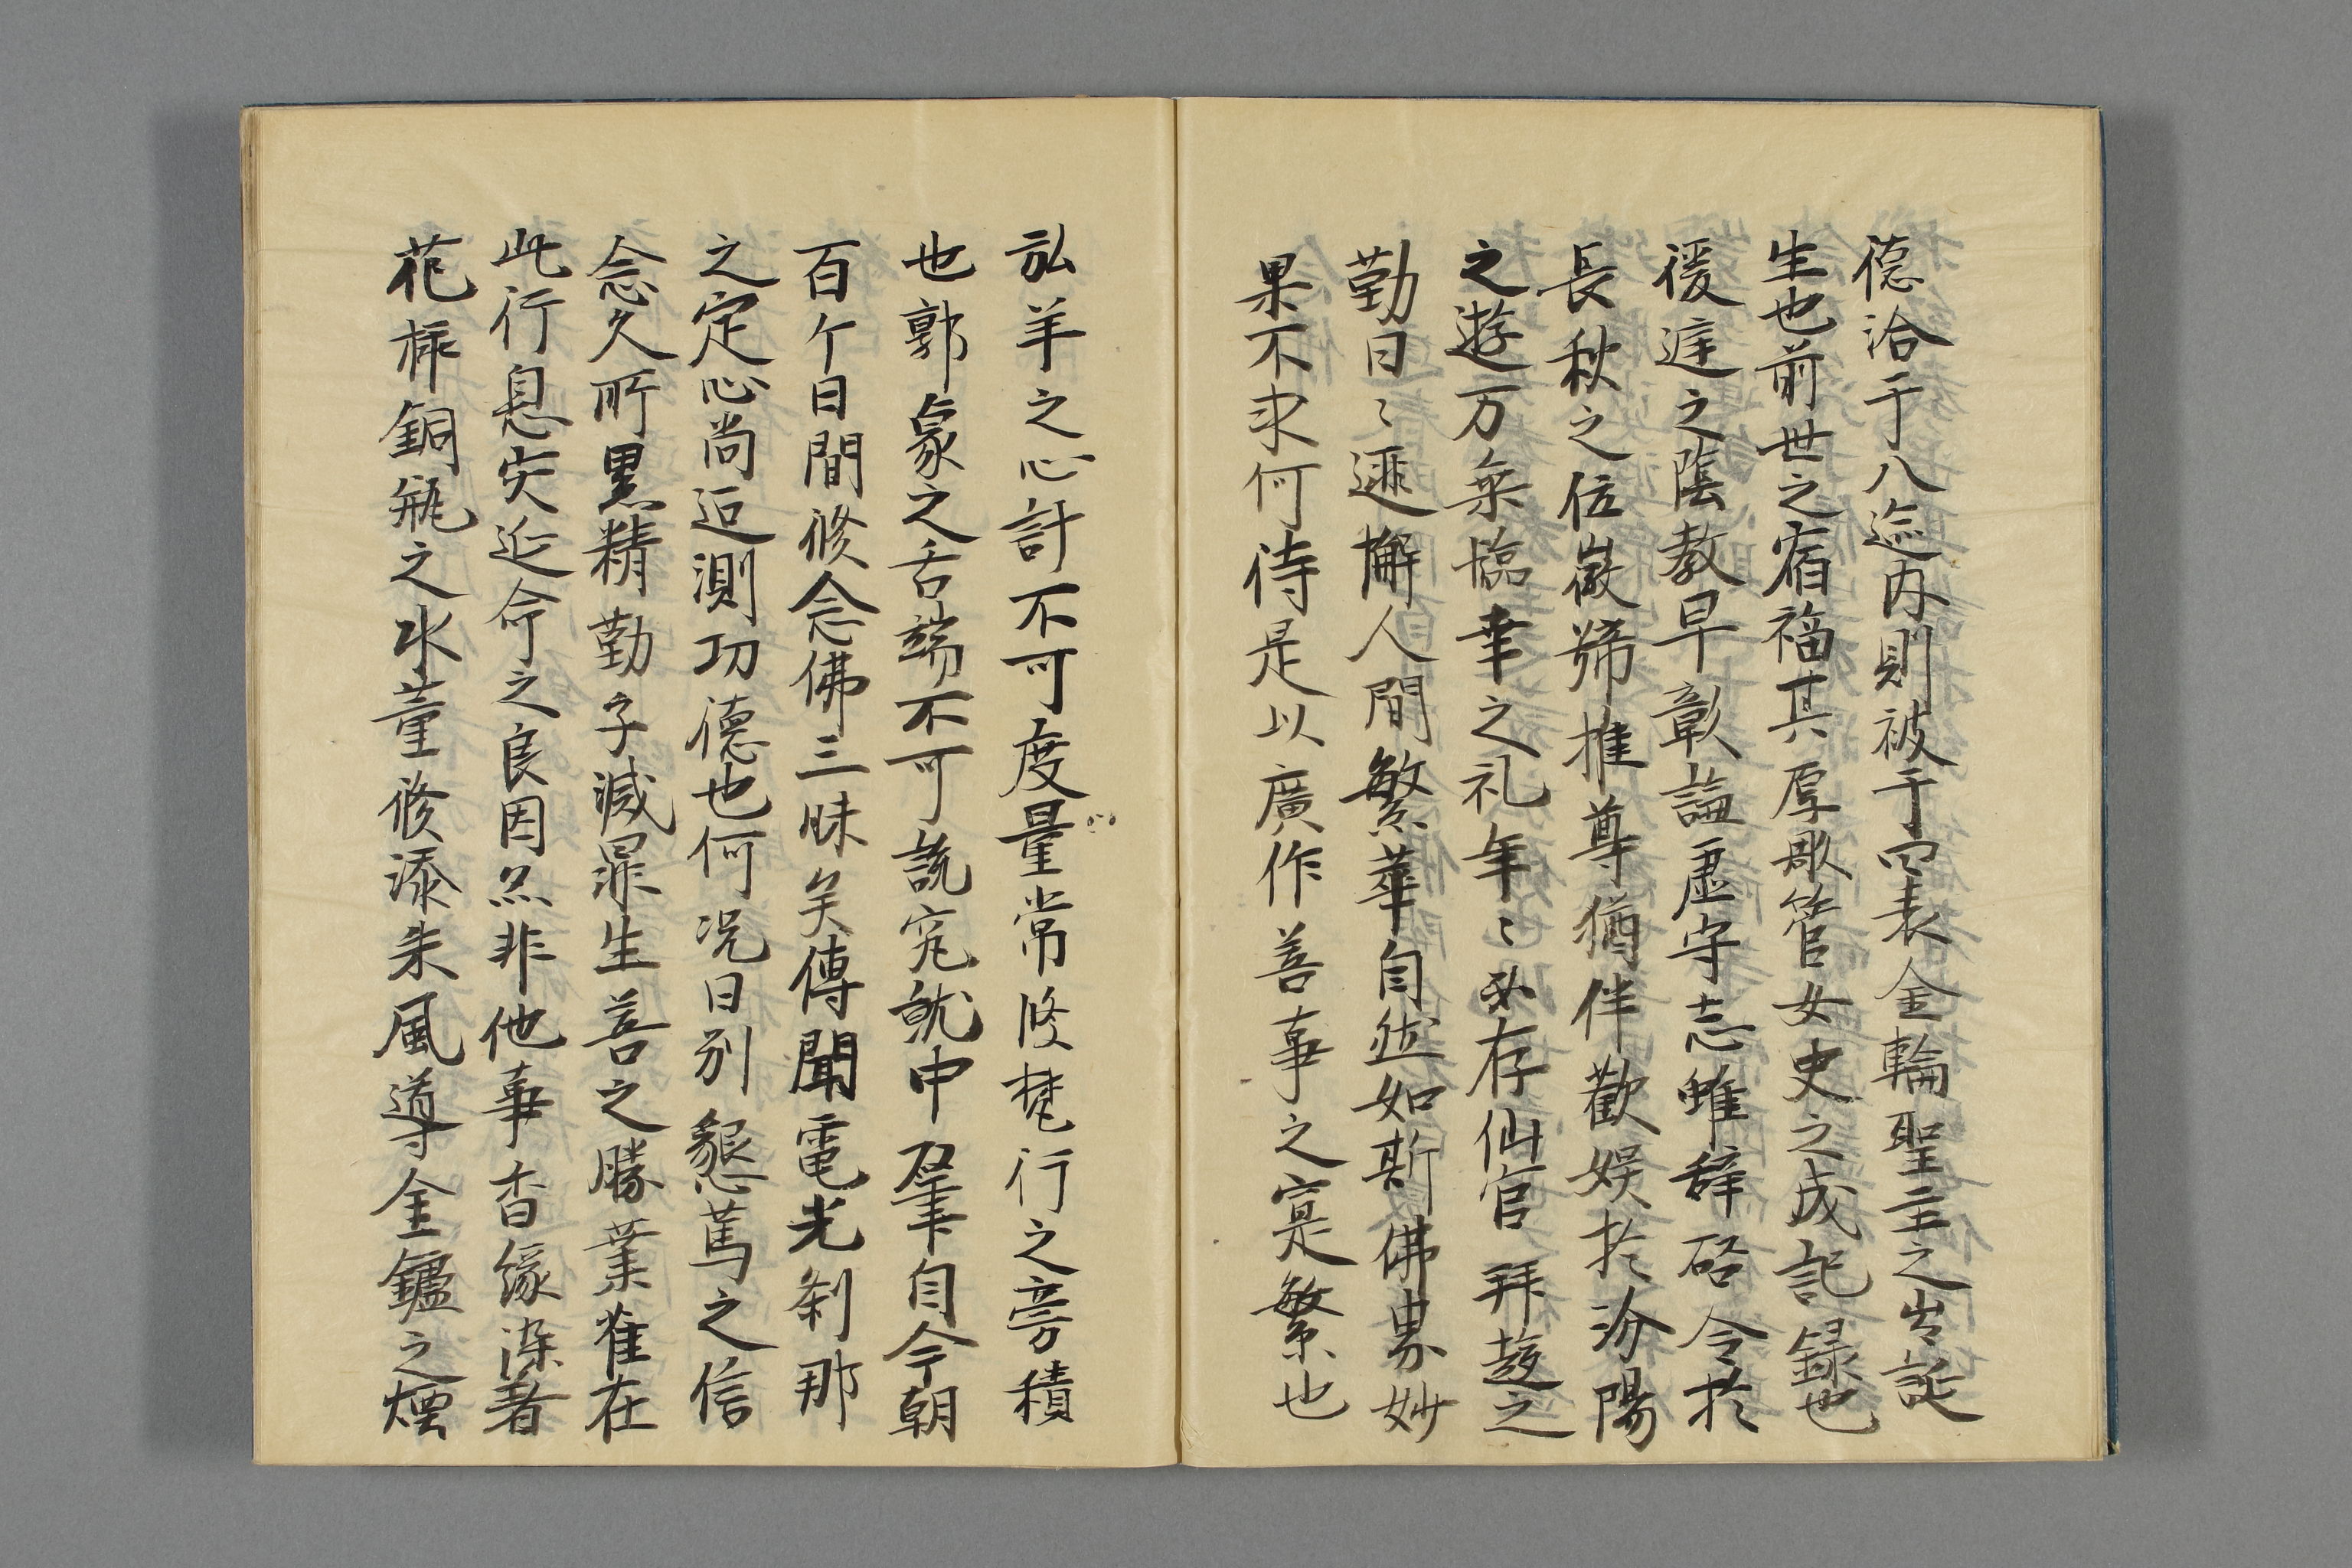 德洽于八埏内則被于四表金輪聖主之岂誕
生也前世之宿福其厚歟管女史之成記録也
後庭之蔭教早彰論虚守志雖辞砡令於
長秋之位徽号推尊猶伴歡娯於汾陽
之遊万乗臨幸之礼年〻必存仙宮拝趍之
勤日〻遞懈人間繁華自然如斯佛界妙
果不求何待是以廣作善事之寔繁也
弘羊之心計不可度量常修梵行之旁積
也郭象之舌端不可説究就中肇自今朝
百ケ日間修念佛三昧矣傳聞電光刹那
之定心尚叵測功德也何况日別懇篤之信
念久所累精勤乎滅罪生善之勝業蓷在
此行息灾延命之良因尒非他事香縁染著
花棌銅瓶之水薫修添朱風導金鑪之煙